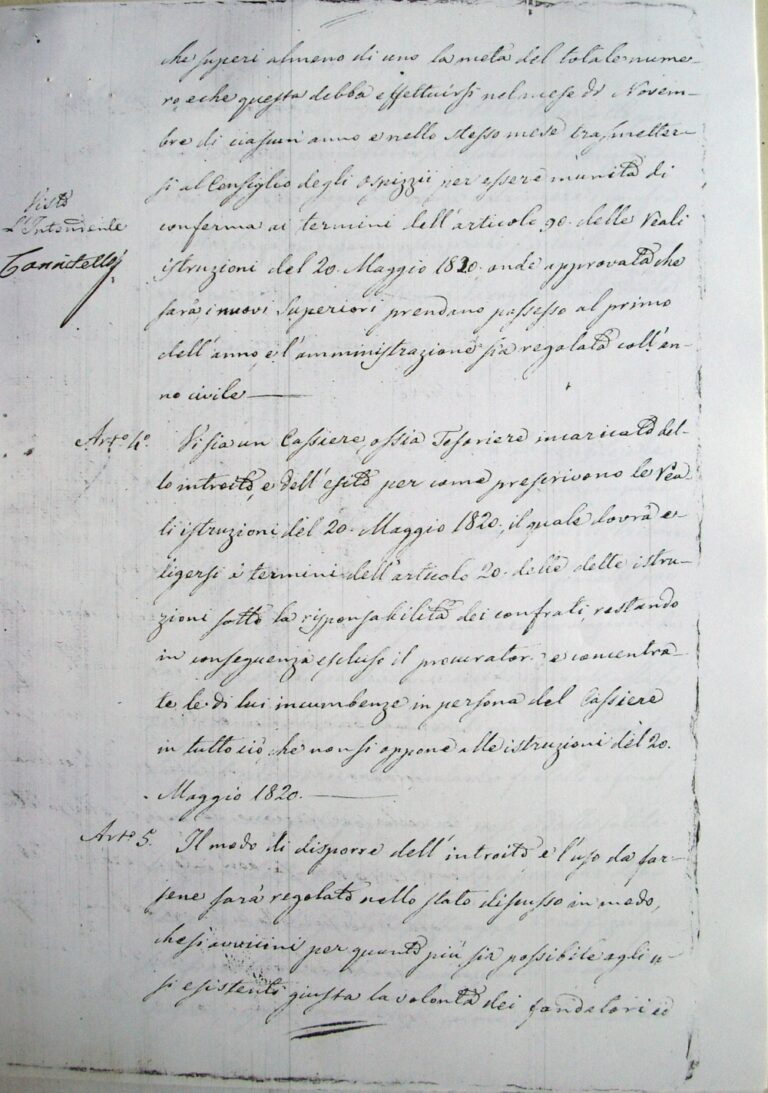 che superi almeno di uno la metà del totale nume-
ro, e che questa debba effettuirsi nel mese di Novem-
bre di ciascun anno e nello stesso mese trasmetter-
si al Consiglio degli Ospizii per essere munita di
Visto
conferma ai termini dell'articolo 90. delle Reali
L'Intendente
istruzioni del 20. Maggio 1820. onde approvata che
sarà, i nuovi Superiori prendano possesso al primo
dell'anno, e l'amministrazione sia regolata coll'an-
no civile
Arto. 4o. Vi sia un Cassiere, ossia Tesoriere incaricato del-
lo introito e dell'esito per come prescrivono le Rea-
li istruzioni del 20. Maggio 1820, il quale dovrà e-
ligersi a' termini dell'articolo 20. delle dette istru-
zioni sotto la risponsabilità dei confrati, restando
in conseguenza escluso il procurator. e concentra-
te le di lui incumbenze in persona del Cassiere
in tutto ciò, che non si oppone alle istruzioni del 20.
Maggio 1820.
Arto. 5. Il modo di disporre dell'introito e l'uso da far-
sene sarà regolato nello stato discusso in modo,
che si avvicini per quanto più sia possibile agli u-
si esistenti giusta la volontà dei fondatori ed